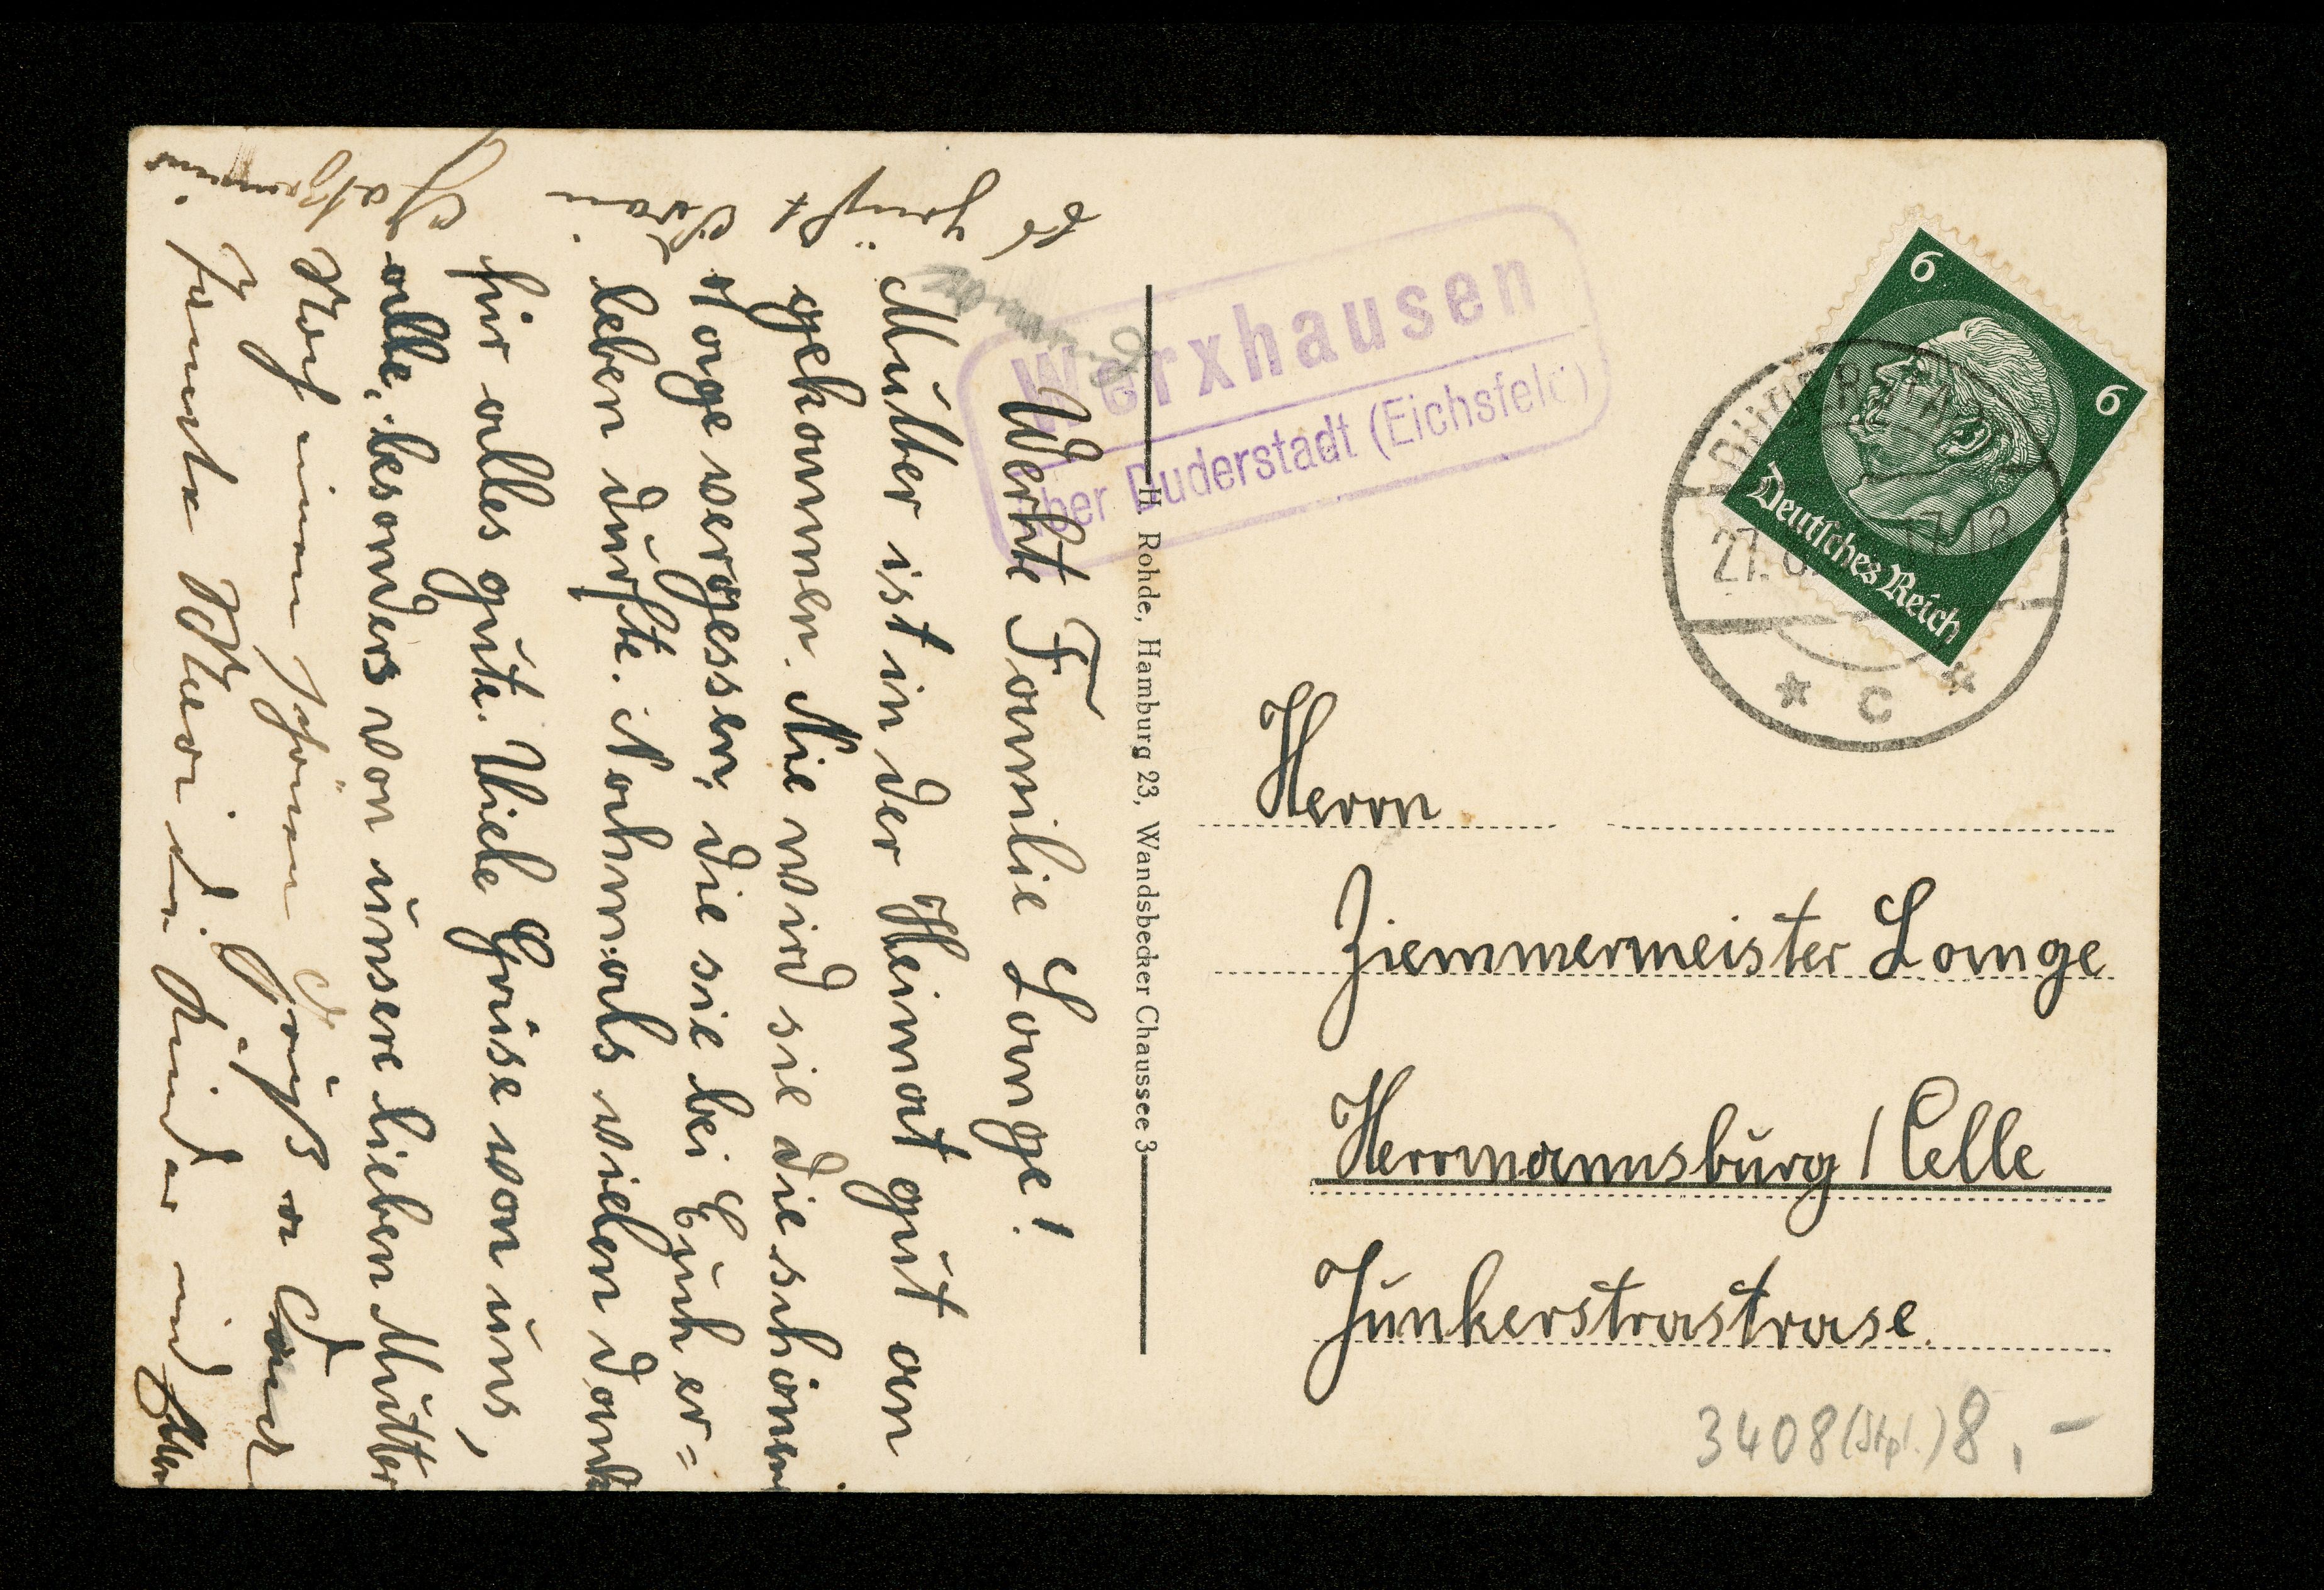 Werxhausen
über Duderstadt (Eichsfeld)
6
6
Deutsches Reich
DUDERSTADT
27.
17-18
* C *
H. Rohde, Hamburg 23, Wandsbecker Chaussee 3
Herrn
Ziemmermeister Lange
Herrmannsburg / Celle
Junkerstrastrase.
3408 (Stpl.) 8,-
Werhte Familie Lange!
Mutter ist in der Heimat gut an
gekommen. Nie wird sie die schönen
Tage vergessen, die sie bei Euch er=
leben durfte. Nochmals vielen Dank
für alles gute. Viele Grüse von uns,
alle, besonders von unsere lieben Mutter
Noch einen schönen Gruß an
Tante die Kinder und
es grüßt
Frau